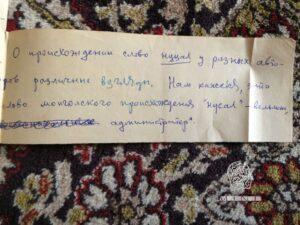 О происхождении слово нуцал у разных авто-
ров различные взгляды. Нам кажется, что
слово монгольского происхождения "нусал" -
администратор".